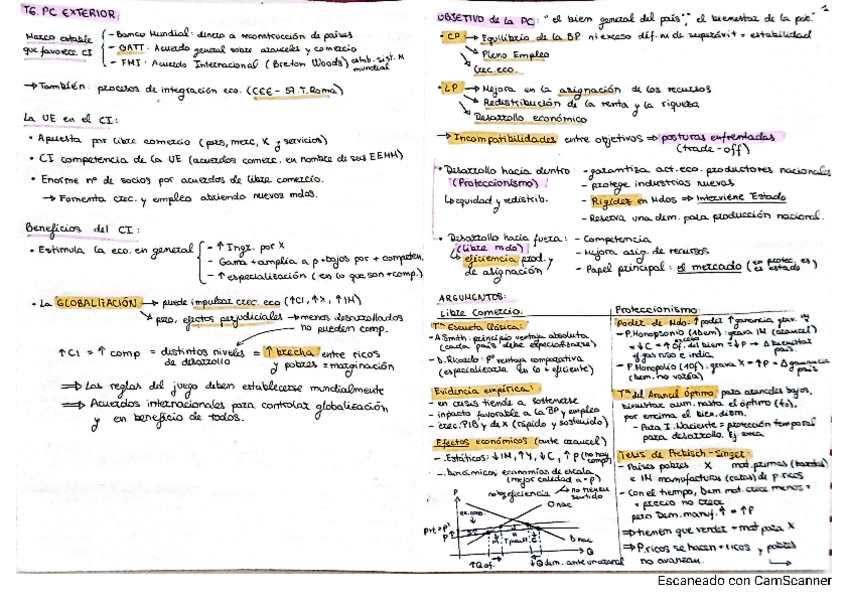 T6. PC EXTERIOR.
Marco estable que favorece CI
- Banco Mundial: dinero a reconstrucción de países
- GATT: Acuerdo general sobre aranceles y comercio
- FMI: Acuerdo Internacional (Breton Woods) estab. sist. M mundial
→ También: procesos de integración eco. (CEE - 57. T. Roma)
La UE en el CI:
• Apuesta por libre comercio (pers, merc, K y servicios)
• CI competencia de la UE (acuerdos comerc. en nombre de sus EEMM)
• Enorme nº de socios por acuerdos de libre comercio.
→ Fomenta crec. y empleo abriendo nuevos mdos.
Beneficios del CI:
• Estimula la eco. en general
- ↑ Ingr. por X
- Gama + amplia a p + bajos por + competen.
- ↑ especialización (en lo que son + comp.)
• La GLOBALIZACIÓN → puede impulsar crec. eco (↑CI, ↑X, ↑IM)
pero, efectos perjudiciales → menos desarrollados no pueden comp.
↑CI = ↑ comp = distintos niveles de desarrollo = ↑ brecha entre ricos y pobres = marginación
⇒ Las reglas del juego deben establecerse mundialmente
⇒ Acuerdos internacionales para controlar globalización
y en beneficio de todos.
1
OBJETIVO de la PC: "el bien general del país", "el bienestar de la pob."
• CP → Equilibrio de la BP: ni exceso déf. ni de superávit = estabilidad
Pleno Empleo
Crec. eco.
• LP → Mejora en la asignación de los recursos
Redistribución de la renta y la riqueza
Desarrollo económico
→ Incompatibilidades entre objetivos ⇒ posturas enfrentadas
(trade-off)
• Desarrollo hacia dentro: (Proteccionismo)
↳ equidad y redistrib.
- garantiza act. eco. productores nacionales
- protege industrias nuevas
- Rigidez en Mdos ⇒ Interviene Estado
- Reserva una dem. para producción nacional.
• Desarrollo hacia fuera: (libre mdo)
↳ eficiencia prod. y de asignación
- Competencia
- Mejora asig. de recursos
- Papel principal: el mercado (en protec. es es estado)
ARGUMENTOS:
Libre Comercio.
Tª Escuela Clásica:
- A. Smith: principio ventaja absoluta
(cada país debe especializarse
- D. Ricardo: Pº ventaja comparativa
(especializarse en lo + eficiente)
Evidencia empírica:
- en crisis tiende a sostenerse
- impacto favorable a la BP y empleo
- crec. PIB y de X (rápido y sostenido)
Efectos económicos (ante arancel)
- Estáticos: ↓IM, ↑Y, ↓C, ↑P (no hay comp)
- Dinámicos: economías de escala
(mejor calidad a - p)
no eficiencia
no tienen sentido
P
O nac
D nac
Q
↑Q of.
↓Q dem. ante un arancel
Proteccionismo:
Poder de Mdo:
- P. Monopsonio (1 dem)
- P. Monopolio (1 of). grava X = ↑P
(dem. no varía)
Tª del Arancel Óptimo: para aranceles bajos,
bienestar aum. hasta el óptimo (to),
por encima el bien. dism.
- Para I. Naciente = protección temporal
para desarrollo.
Tesis de Prebisch-Singer:
- Países pobres X mat. primas (baratas)
e IM manufacturas (caras) de p. ricos
- Con el tiempo, Dem. mat. crece menos
• precio no crece
pero Dem. manuf. ↑ = ↑P
⇒ tienen que vender + mat para X
⇒ P. ricos se hacen + ricos y pobres
no avanzan.
Escaneado con CamScanner